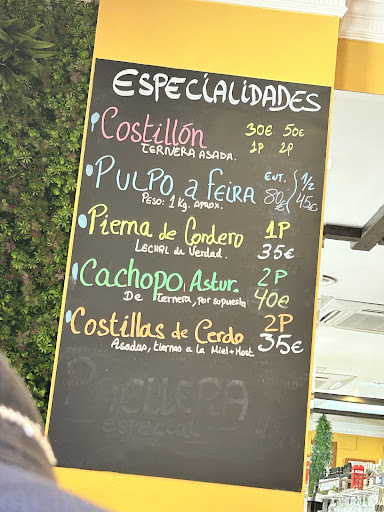 ESPECIALIDADES
Costillón 30€ 50€
TERNERA ASADA. 1P 2P
PULPO a feira ENT. 1/2
PESO: 1 Kg. APROX. 80€ 45€
Pierna de Cordero 1P
LECHAL de Verdad. 35€
Cachopo Astur. 2P
De ternera, por supuesto 40€
Costillas de Cerdo 2P
Asadas, tiernas a la Miel + Most. 35€
especial